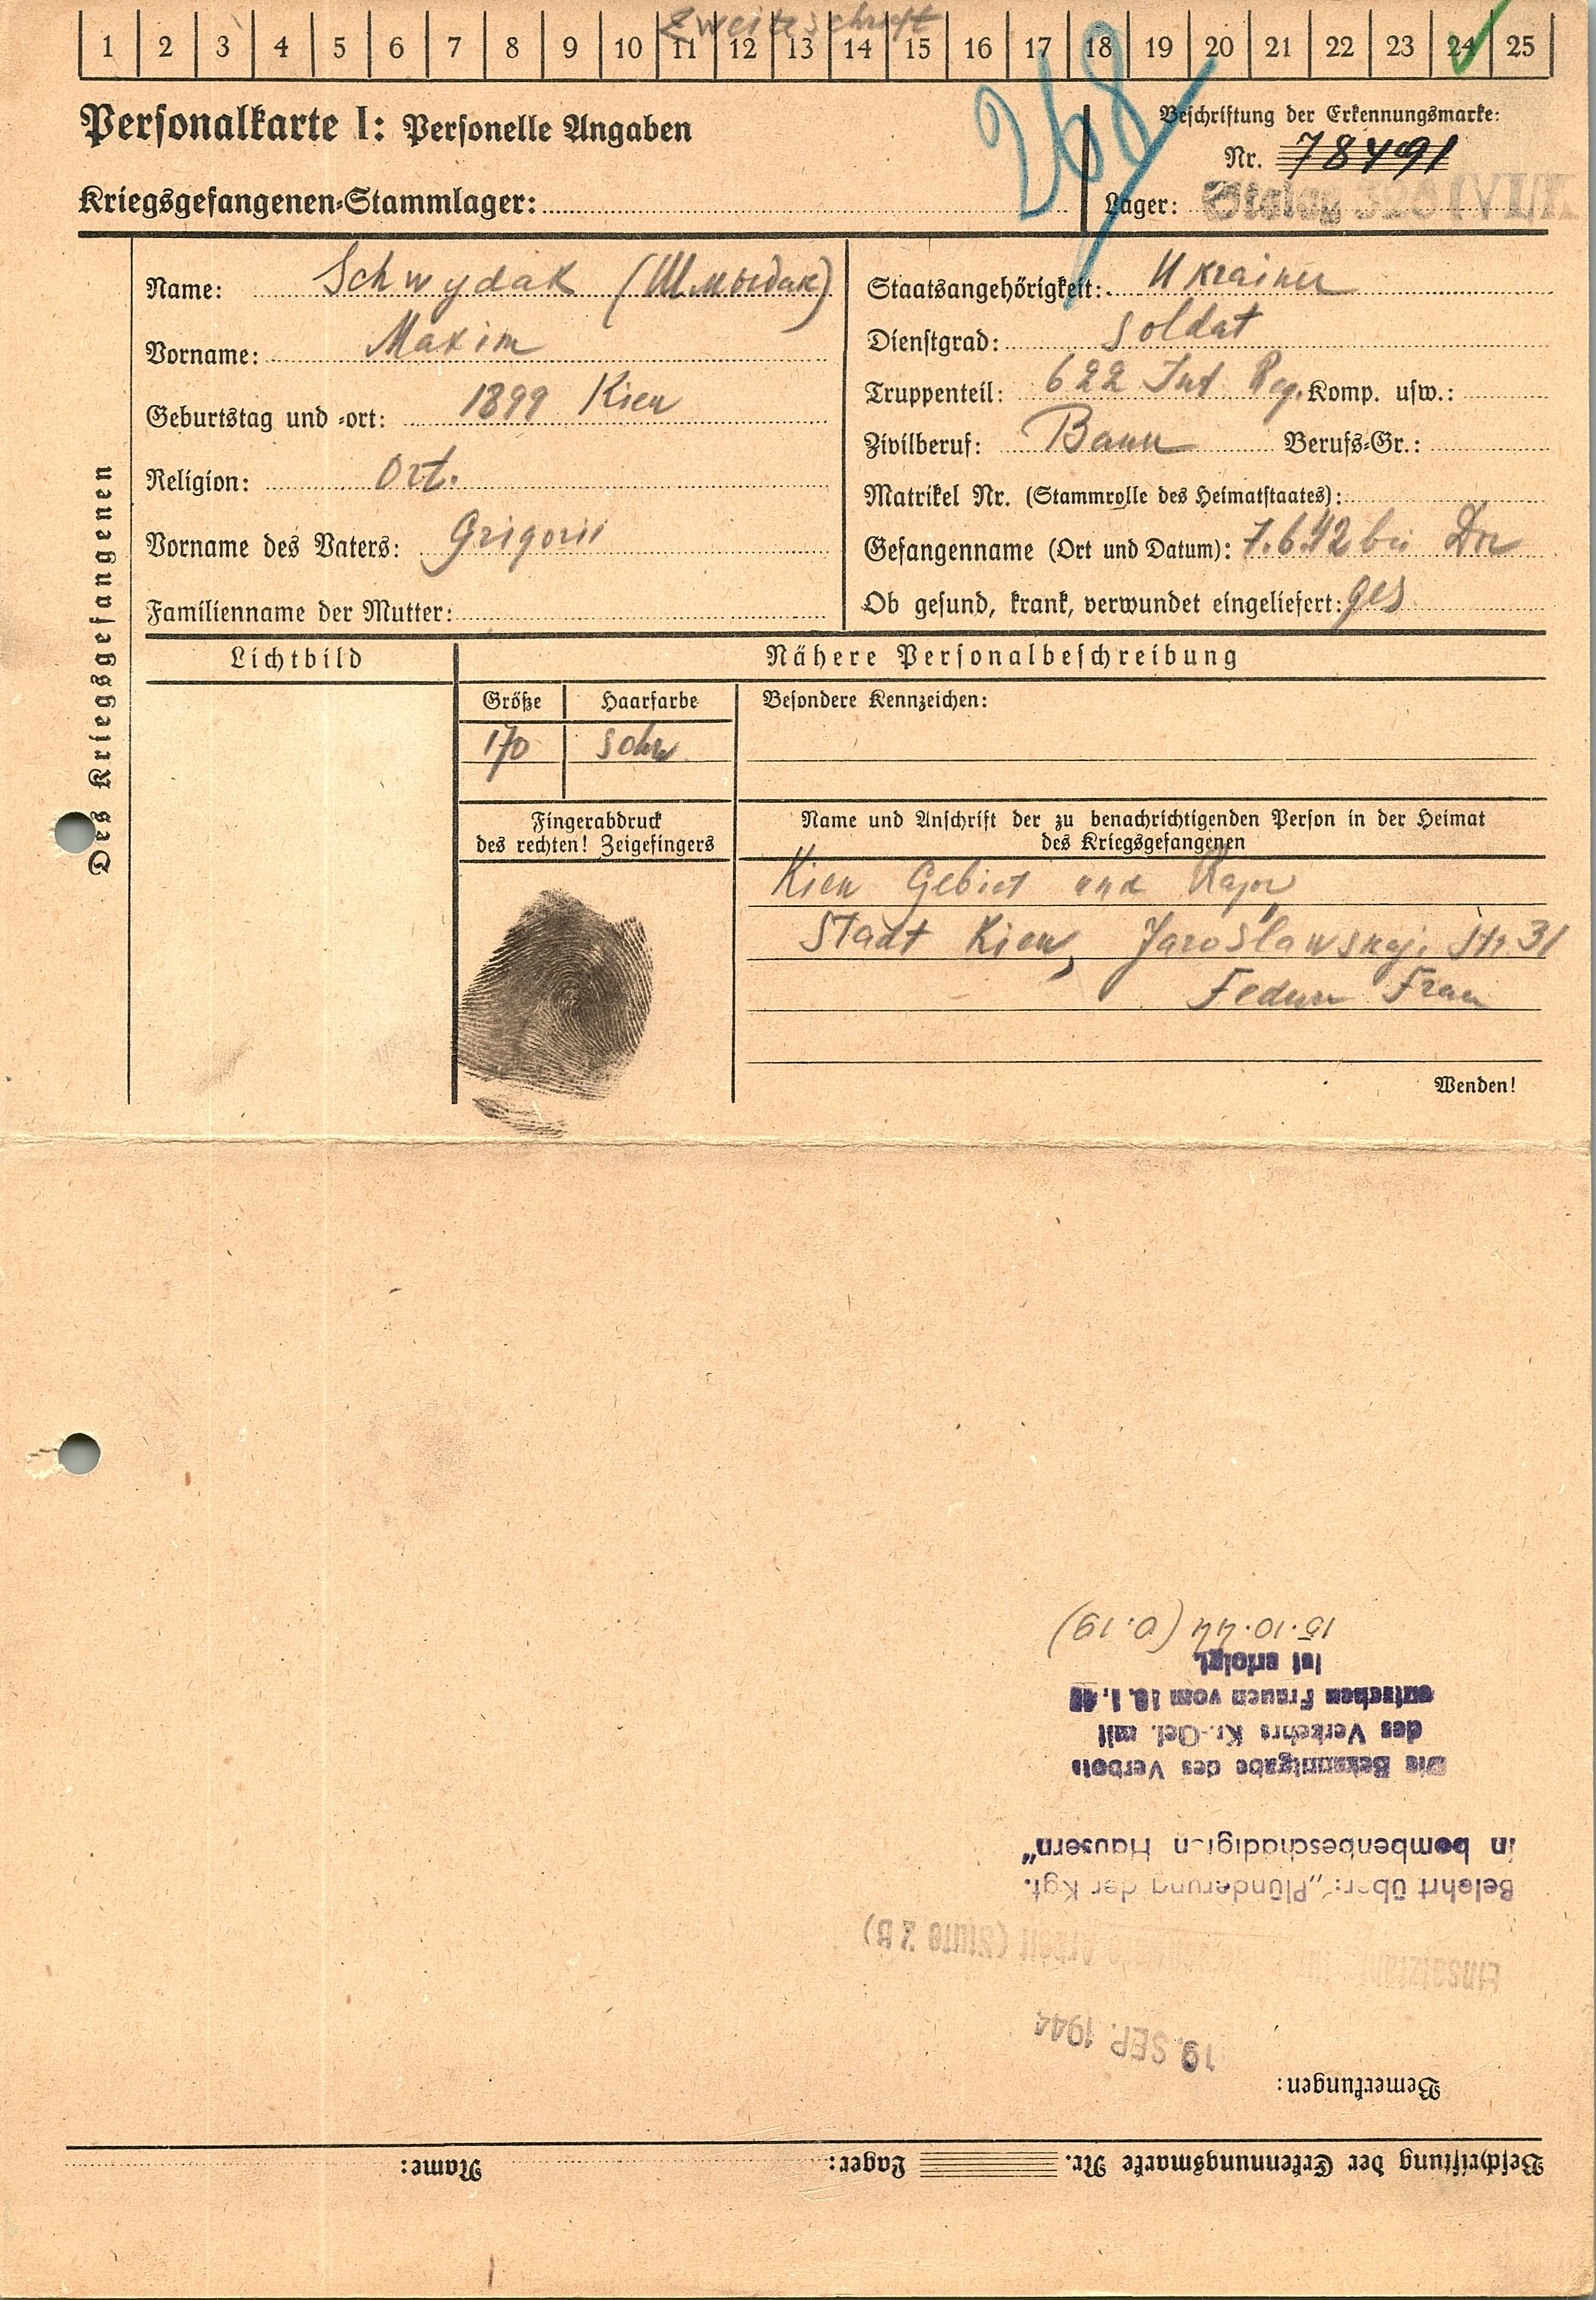 Zweitschrift
1 2 3 4 5 6 7 8 9 10 11 12 13 14 15 16 17 18 19 20 21 22 23 24 25
268
Personalkarte I: Personelle Angaben
Beschriftung der Erkennungsmarke:
Nr. 78491
Kriegsgefangenen-Stammlager:
Lager: Stalag 326 (VI/K
Des Kriegsgefangenen
Name: Schwydak
Vorname: Maxim
Geburtstag und -ort: 1899 Kiew
Religion: Ort.
Vorname des Vaters: Grigorii
Familienname der Mutter:
Staatsangehörigkeit: Ukrainer
Dienstgrad: Soldat
Truppenteil: 622 Inf Reg. Komp. usw.:
Zivilberuf: Bauer Berufs-Gr.:
Matrikel Nr. (Stammrolle des Heimatstaates):
Gefangennahme (Ort und Datum): 7.6.42 bei
Ob gesund, krank, verwundet eingeliefert: ges
Lichtbild
Nähere Personalbeschreibung
Größe Haarfarbe
170 schw
Besondere Kennzeichen:
Fingerabdruck
des rechten! Zeigefingers
Name und Anschrift der zu benachrichtigenden Person in der Heimat
des Kriegsgefangenen
Kiew Gebiet und Rajon
Stadt Kiew, Jaroslawskaj. Str. 31
Frau
Wenden!
Beschriftung der Erkennungsmarke Nr. Lager: Name:
Bemerkungen:
19. SEP. 1944
Einsatzfähig für Arbeit (Stufe 2 B)
Belehrt über: „Plünderung der Kgf.
in bombenbeschädigten Häusern"
Die Bekanntgabe des Verbots
des Verkehrs Kr.-Gef. mit
deutschen Frauen vom 10.1.40
ist erfolgt.
15.10.44 (0.19)